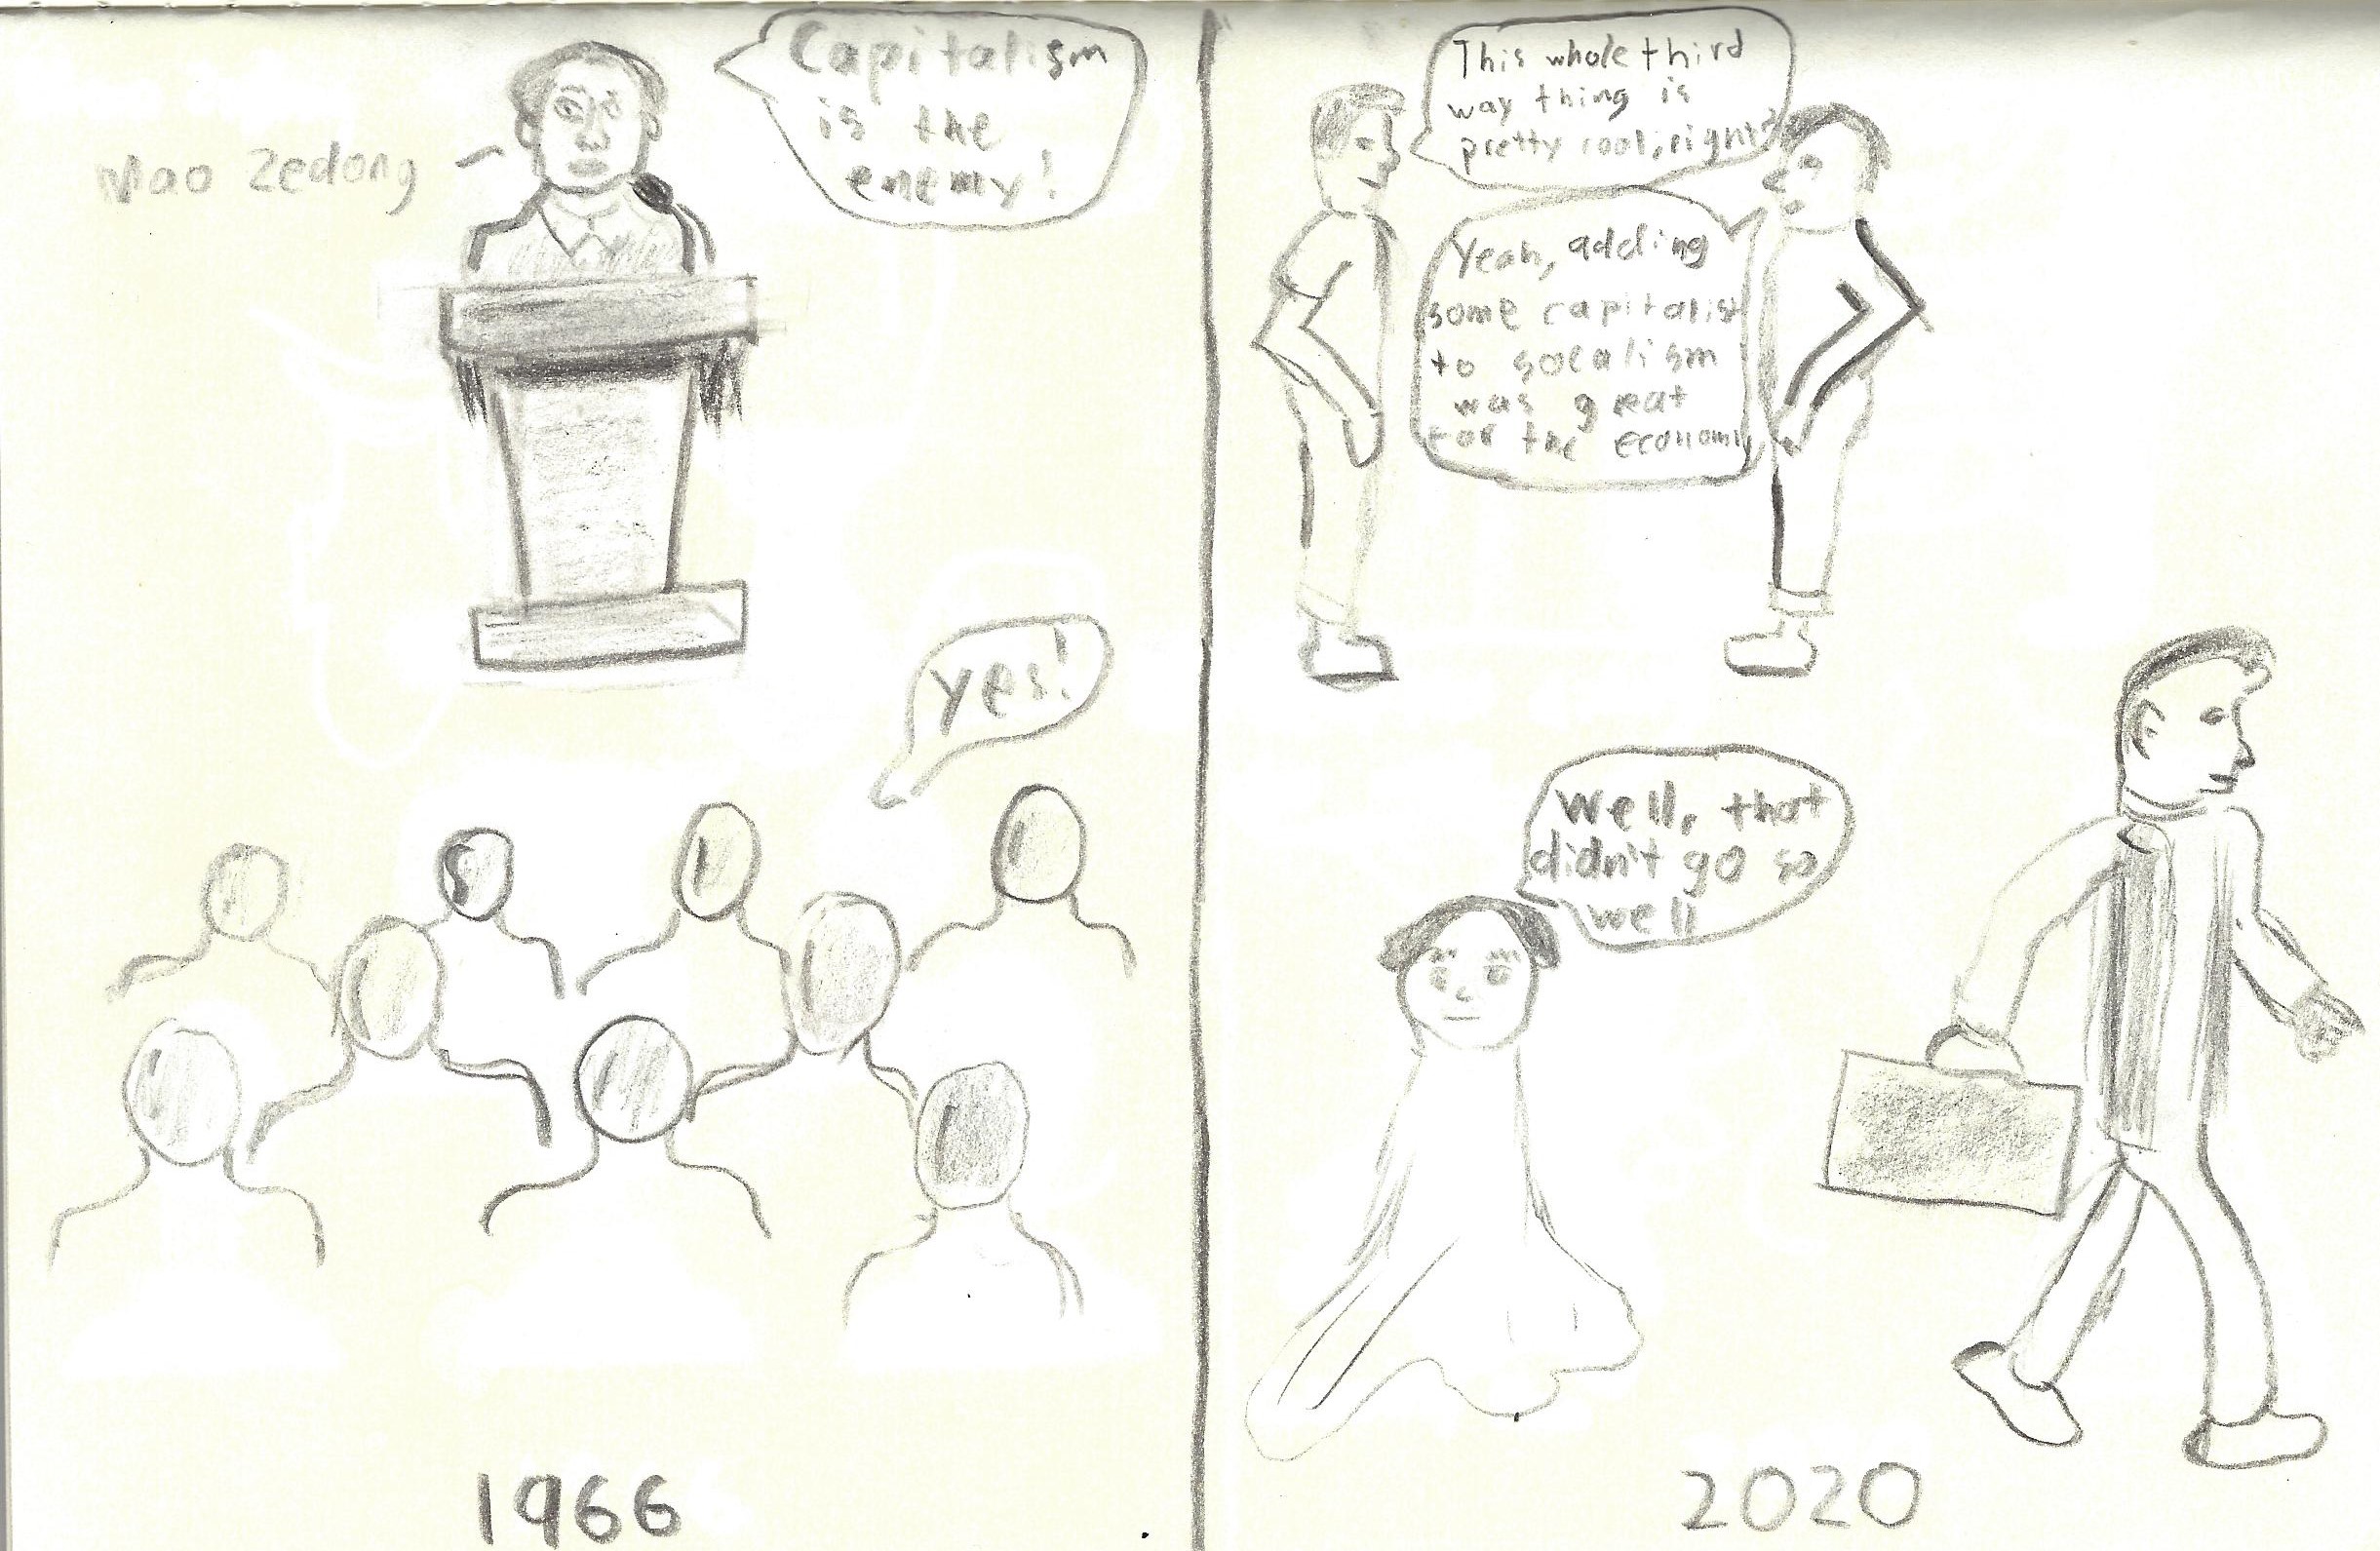 Capitalism
is the
enemy!
Mao Zedong
Yes!
1966
This whole third
way thing is
pretty cool, right?
Yeah, adding
some capitalist
to socalism
was great
for the economy
Well, that
didn't go so
well
2020